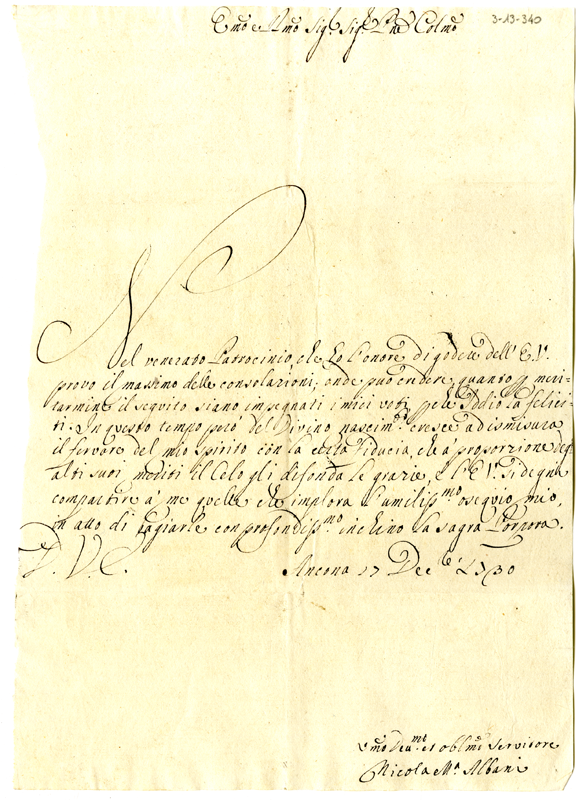 3-13-340
Emo e Rmo Sig.r Sig.r Pne Colmo
Nel venerato Patrocinio che hò l'onore di godere dell'E.V.
provo il massimo delle consolazioni; onde può credere, quanto p meri-
tarmene il seguito siano impegnati i miei voti, pche Iddio la felici-
ti. In questo tempo però del Divino nascim.o cresce à dismisura
il fervore del mio spirito con la certa fiducia, che à proporzione degl'
alti suoi meriti il Celo gli difonda le grazie, e l'E.V. si degna
compartire à me quelle che implora l'umiliss.mo osequio mio,
in atto di bagiarle con profondiss.mo inchino la sagra Porpora.
D. V. E. Ancona 17 Dec.bre 1730
Vmo Deu.mo et oblmo Servitore
Nicola M.a Albani